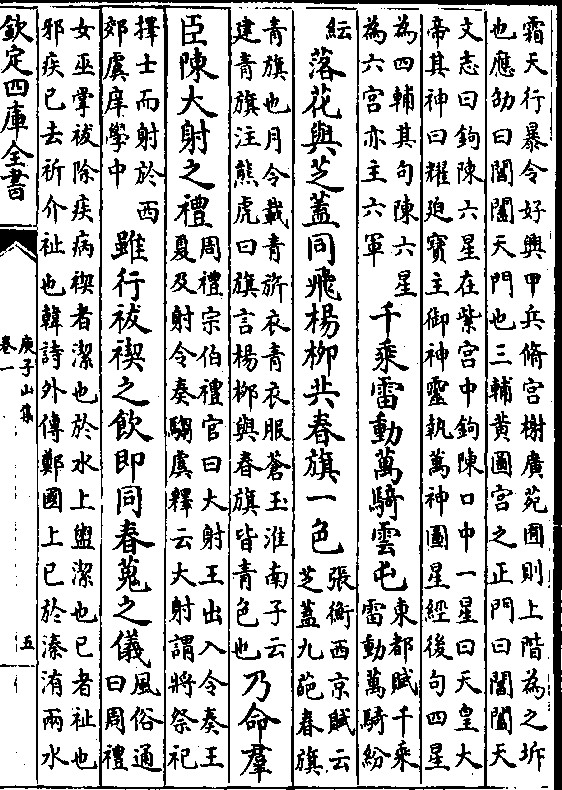 霜天行暴令好興甲兵脩宮榭廣苑囿則上階為之坼
也應劭曰閶闔天門也三輔黄圖宮之正門曰閶闔天
文志曰鉤陳六星在紫宮中鉤陳口中一星曰天皇大
帝其神曰耀迫寶主御神靈執萬神圖星經後句四星
為四輔其句陳六星
為六宮亦主六軍
千乘雷動萬騎雲屯
東都賦千乘
雷動萬騎紛
紜
落花與芝蓋同飛楊柳共春旗一色
張衡西京賦云
芝蓋九葩春旗
青旗也月令載青旂衣青衣服蒼玉淮南子云
建青旗注熊虎曰旗言楊柳與春旗皆青色也
乃命羣
臣陳大射之禮
周禮宗伯禮官曰大射王出入令奏王
夏及射令奏騶虞釋云大射謂將祭祀
擇士而射於西
郊虞庠學中
雖行祓禊之飲即同春蒐之儀
風俗通
曰周禮
女巫掌祓除疾病禊者潔也於水上盥潔也巳者祉也
邪疾已去祈介祉也韓詩外傳鄭國上巳於溱洧兩水
欽定四庫全書
庾子山集
卷一
五